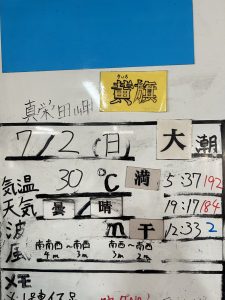 きいろ
真栄田岬 黄旗
7/2(日) 大潮
気温 30℃ 満 5:37 192
天気 曇/晴 19:17 184
波 m 干 12:33 2
風 南南西~南西 南西~南西
4m 3m 3m 2m
メモ